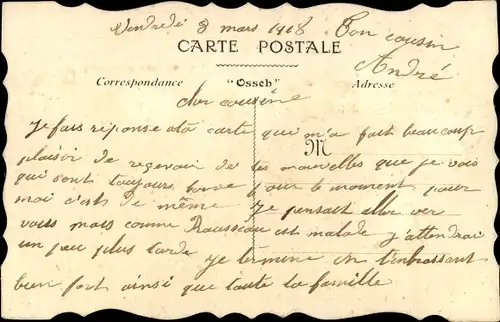 Vendredi 8 mars 1918 Ton cousin
CARTE POSTALE
André
Correspondance "Osseh" Adresse
cher cousine
Je fais réponse a ta carte que m'a fait beaucoup
M
plaisir de recevoir de tes nouvelles que je vois
qui sont toujours bonne pour le moment pour
moi c'est de même Je pensait aller ver
vous mais comme Rousseau est malade j'attendrai
un peu plus tarde je termine en t'enbrassant
bien fort ainsi que toute la famille